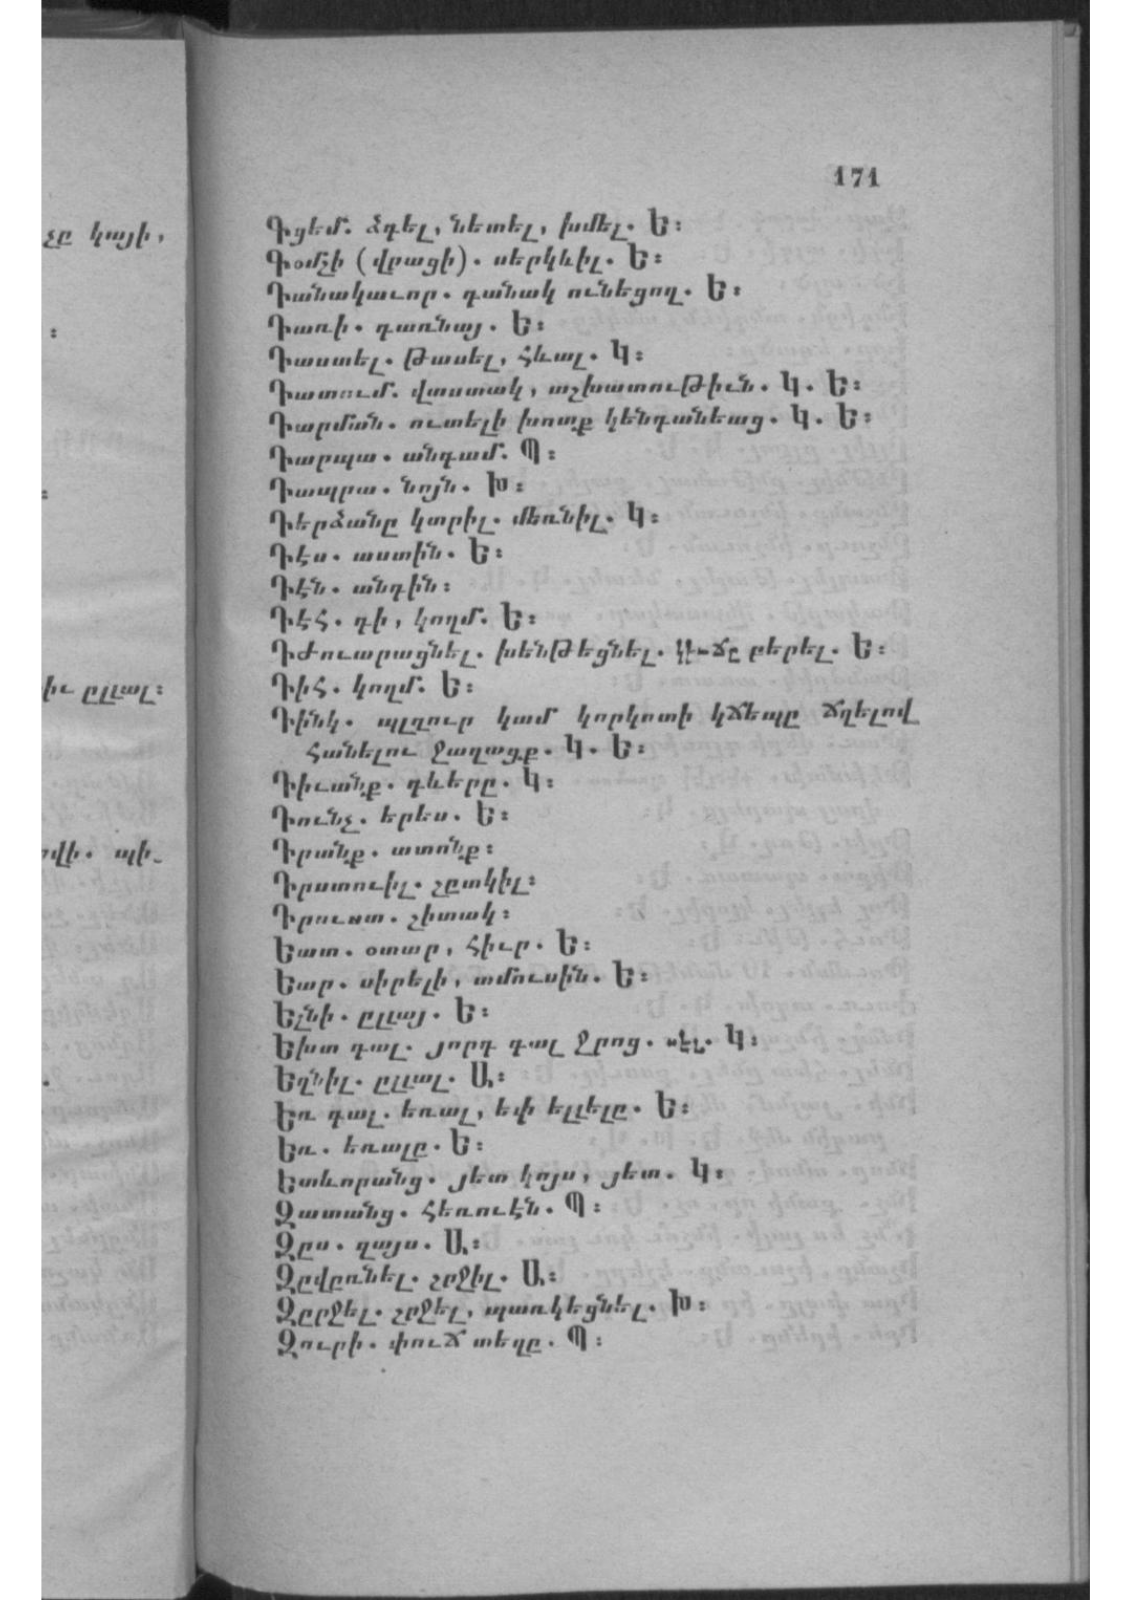 171
Գցեմ. ձգել, նետել, խմել. Ե։
Գօմշի (վրացի). սերկևիլ. Ե։
Դանակաւոր. դանակ ունեցող. Ե։
Դառի. դառնայ. Ե։
Դաստել. թասել, հևալ. Կ։
Դատում. վաստակ, աշխատութիւն. Կ. Ե։
Դարման. ուտելի խոտք կենդանեաց. Կ. Ե։
Դարպա. անգամ. Պ։
Դապրա. նոյն. Խ։
Դերձանը կտրիլ. մեռնիլ. Կ։
Դէս. աստին. Ե։
Դէն. անդին։
Դէհ. դի, կողմ. Ե։
Դժուարացնել. խենթեցնել. բերել. Ե։
Դիհ. կողմ. Ե։
Դինկ. պլղուր կամ կորկոտի կճեպը ճղելով
հանելու ջաղացք. Կ. Ե։
Դիւանք. դևերը. Կ։
Դունչ. երես. Ե։
Դրանք. ատոնք։
Դրստուիլ. շըտկիլ։
Դրուստ. շիտակ։
Եատ. օտար, հիւր. Ե։
Եար. սիրելի, ամուսին. Ե։
Ելնի. ըլլայ. Ե։
Եխտ գալ. յորդ գալ ջրոց. Կ։
Եղնիլ. ըլլալ. Ա։
Եռ գալ. եռալ, եփ ելլելը. Ե։
Եռ. եռալը. Ե։
Ետևորանց. յետ կոյս, յետ. Կ։
Զատանց. հեռուէն. Պ։
Զըս. զայս. Ա։
Զըվըռնել. շրջիլ. Ա։
Զըրջել. շրջել, պառկեցնել. Խ։
Զուրի. փուճ տեղը. Պ։
չը կայի,
։
։
իւ ըլլալ։
ովի. պի-
.